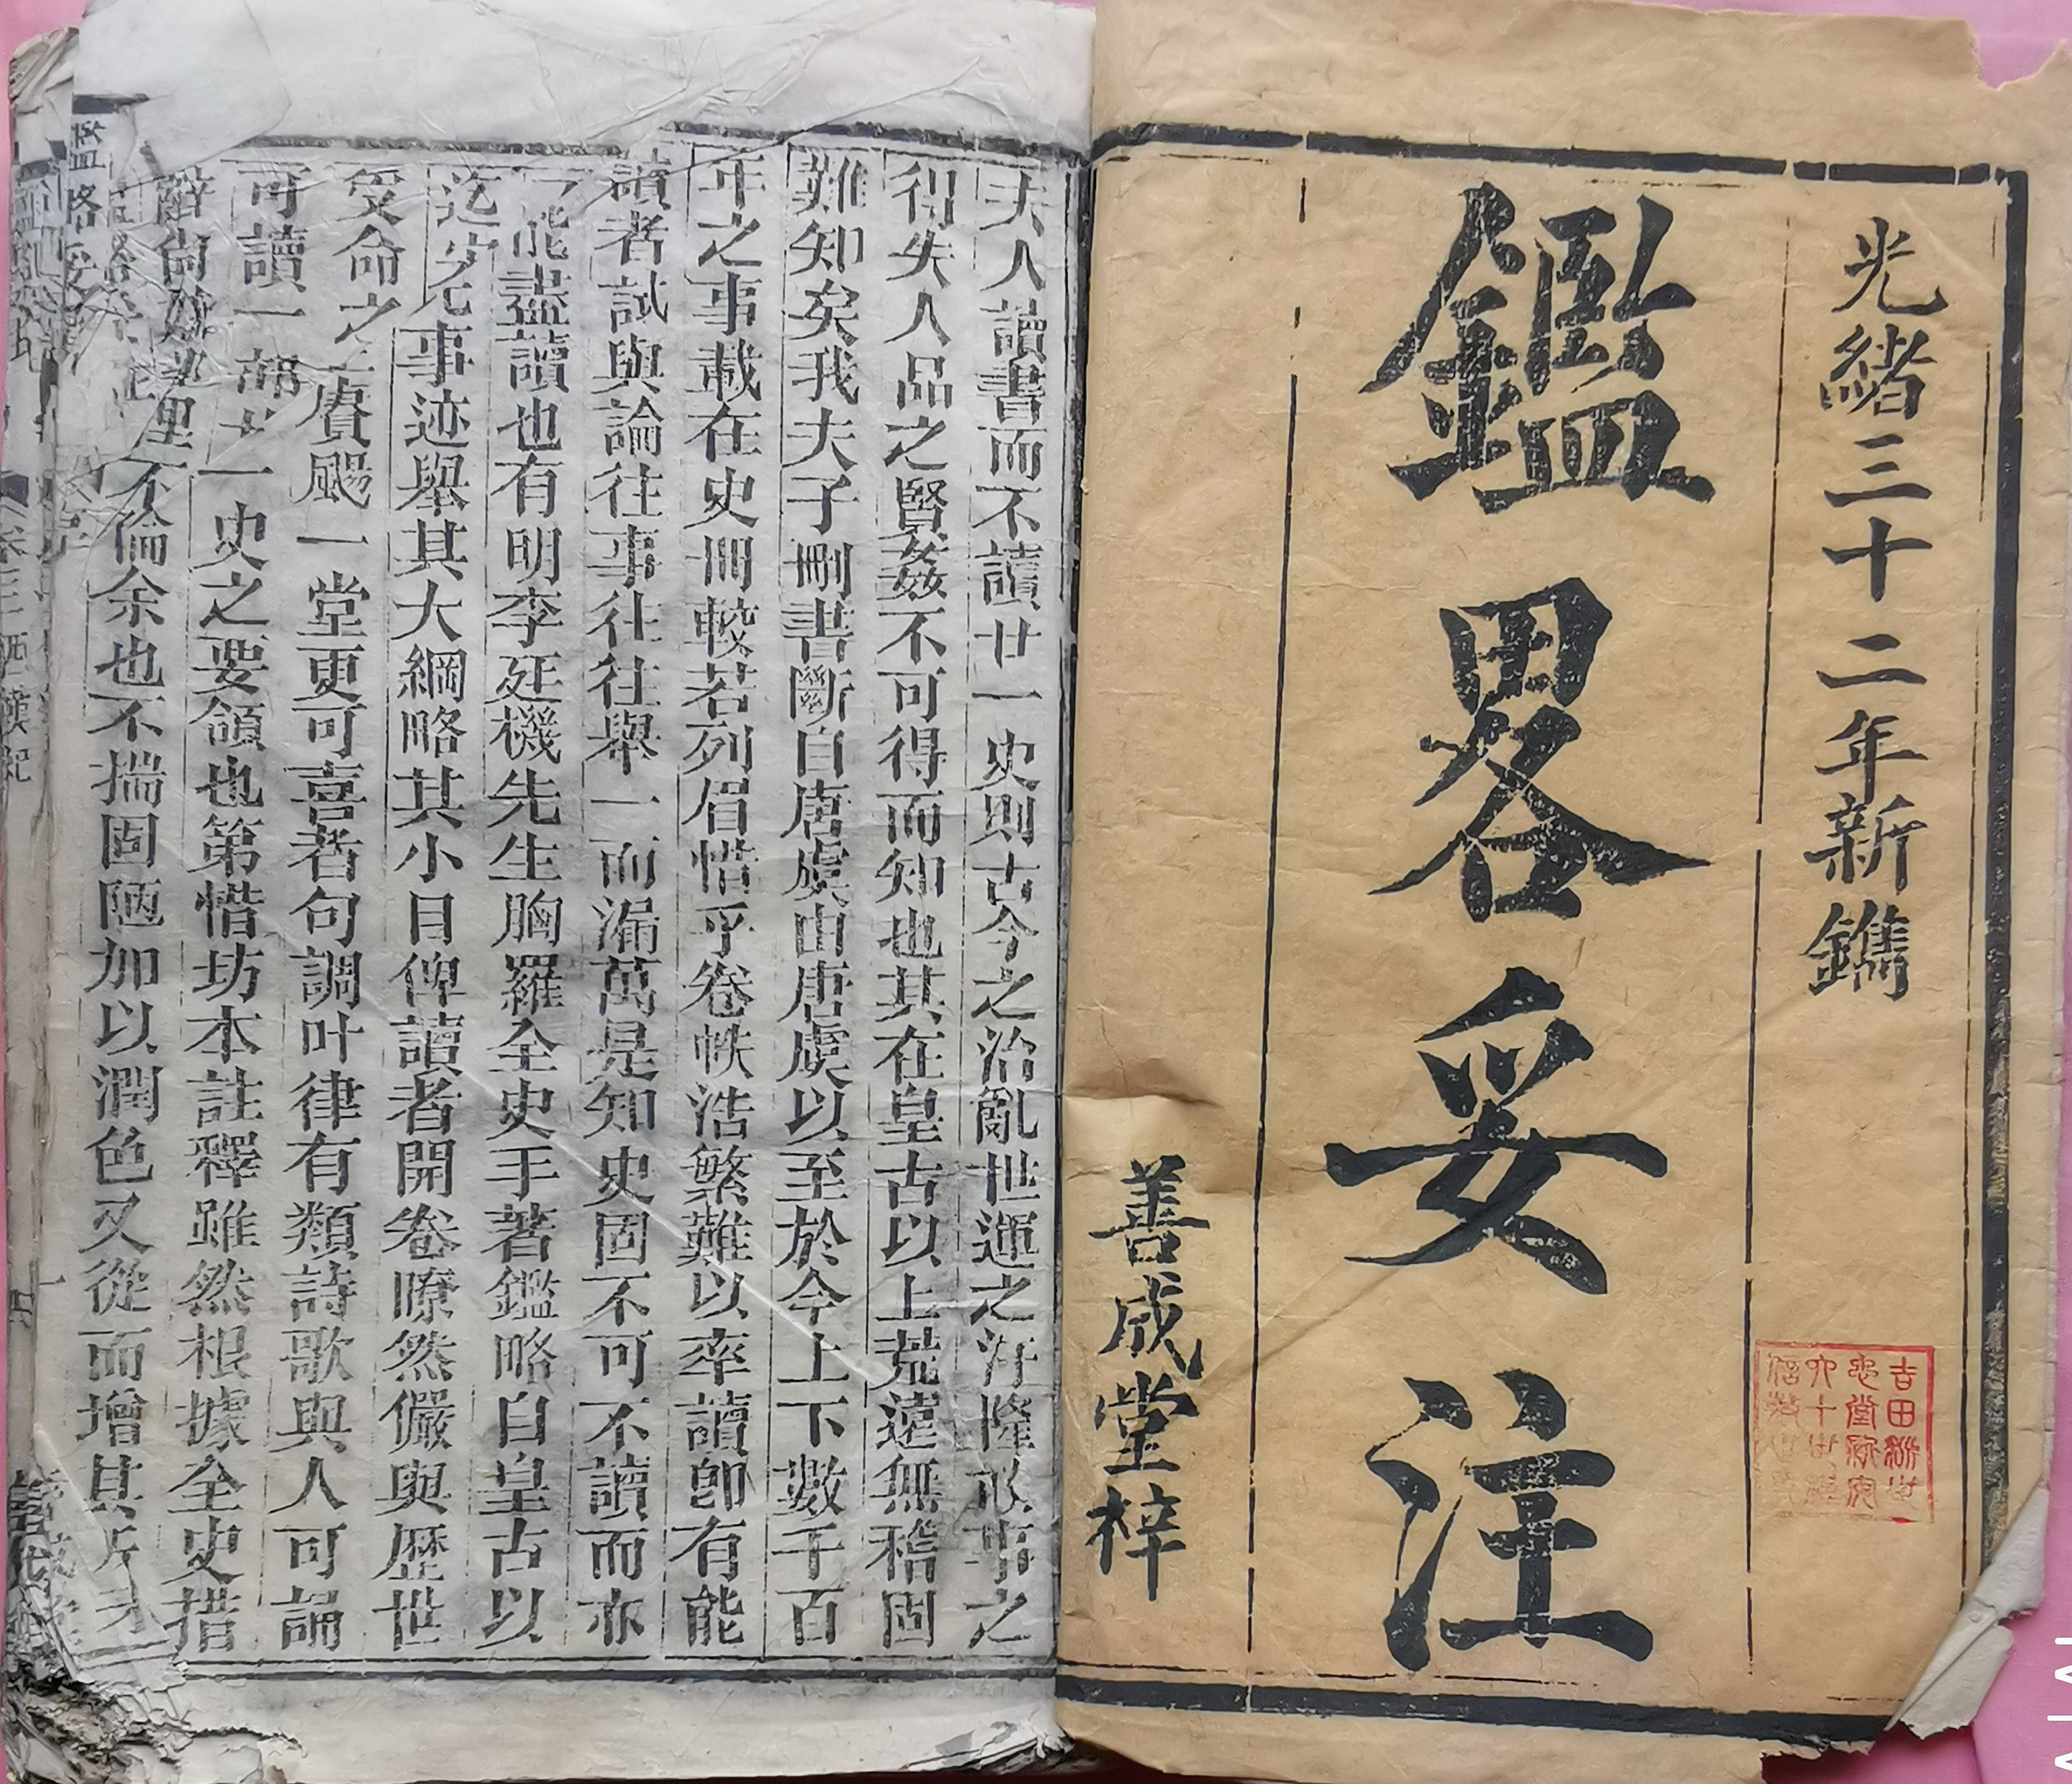 光緒三十二年新鐫
鑑畧妥注
善成堂梓
夫人讀書而不讀廿一史則古今之治亂世運之汙隆政事之
得失人品之賢姦不可得而知也其在皇古以上荒遠無稽固
難知矣我夫子刪書斷自唐虞由唐虞以至於今上下數千百
年之事載在史冊較若列眉惜乎卷帙浩繁難以卒讀卽有能
讀者試與論往事往往舉一而漏萬是知史固不可不讀而亦
能盡讀也有明李廷機先生胸羅全史手著鑑略自皇古以
迄 事迹舉其大綱略其小目俾讀者開卷瞭然儼與歷世
受命之 賡颺一堂更可喜者句調叶律有類詩歌與人可誦
可讀一部廿一史之要領也第惜坊本註釋雖然根據全史措
辭 俚不倫余也不揣固陋加以潤色又從而增其所
鑑略妥
卷三 西漢紀
四